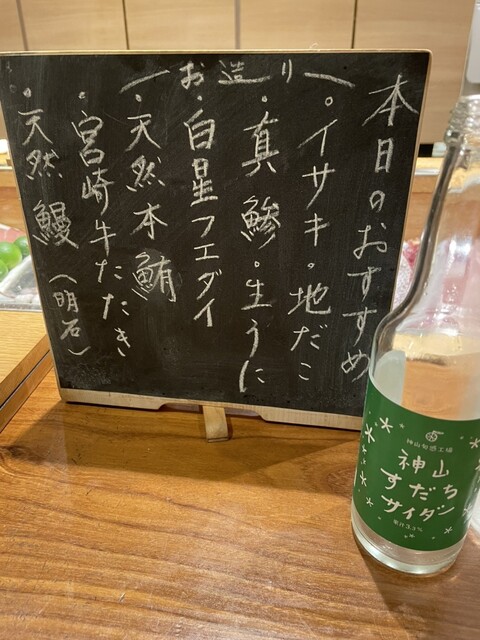 本日のおすすめ
お造り
・イサキ・地だこ
・真鯵・生うに
・白星フエダイ
・天然本鮪
・宮崎牛たたき
・天然鰻(明石)
神山旬感工場
神山
すだち
サイダー
果汁3.7%